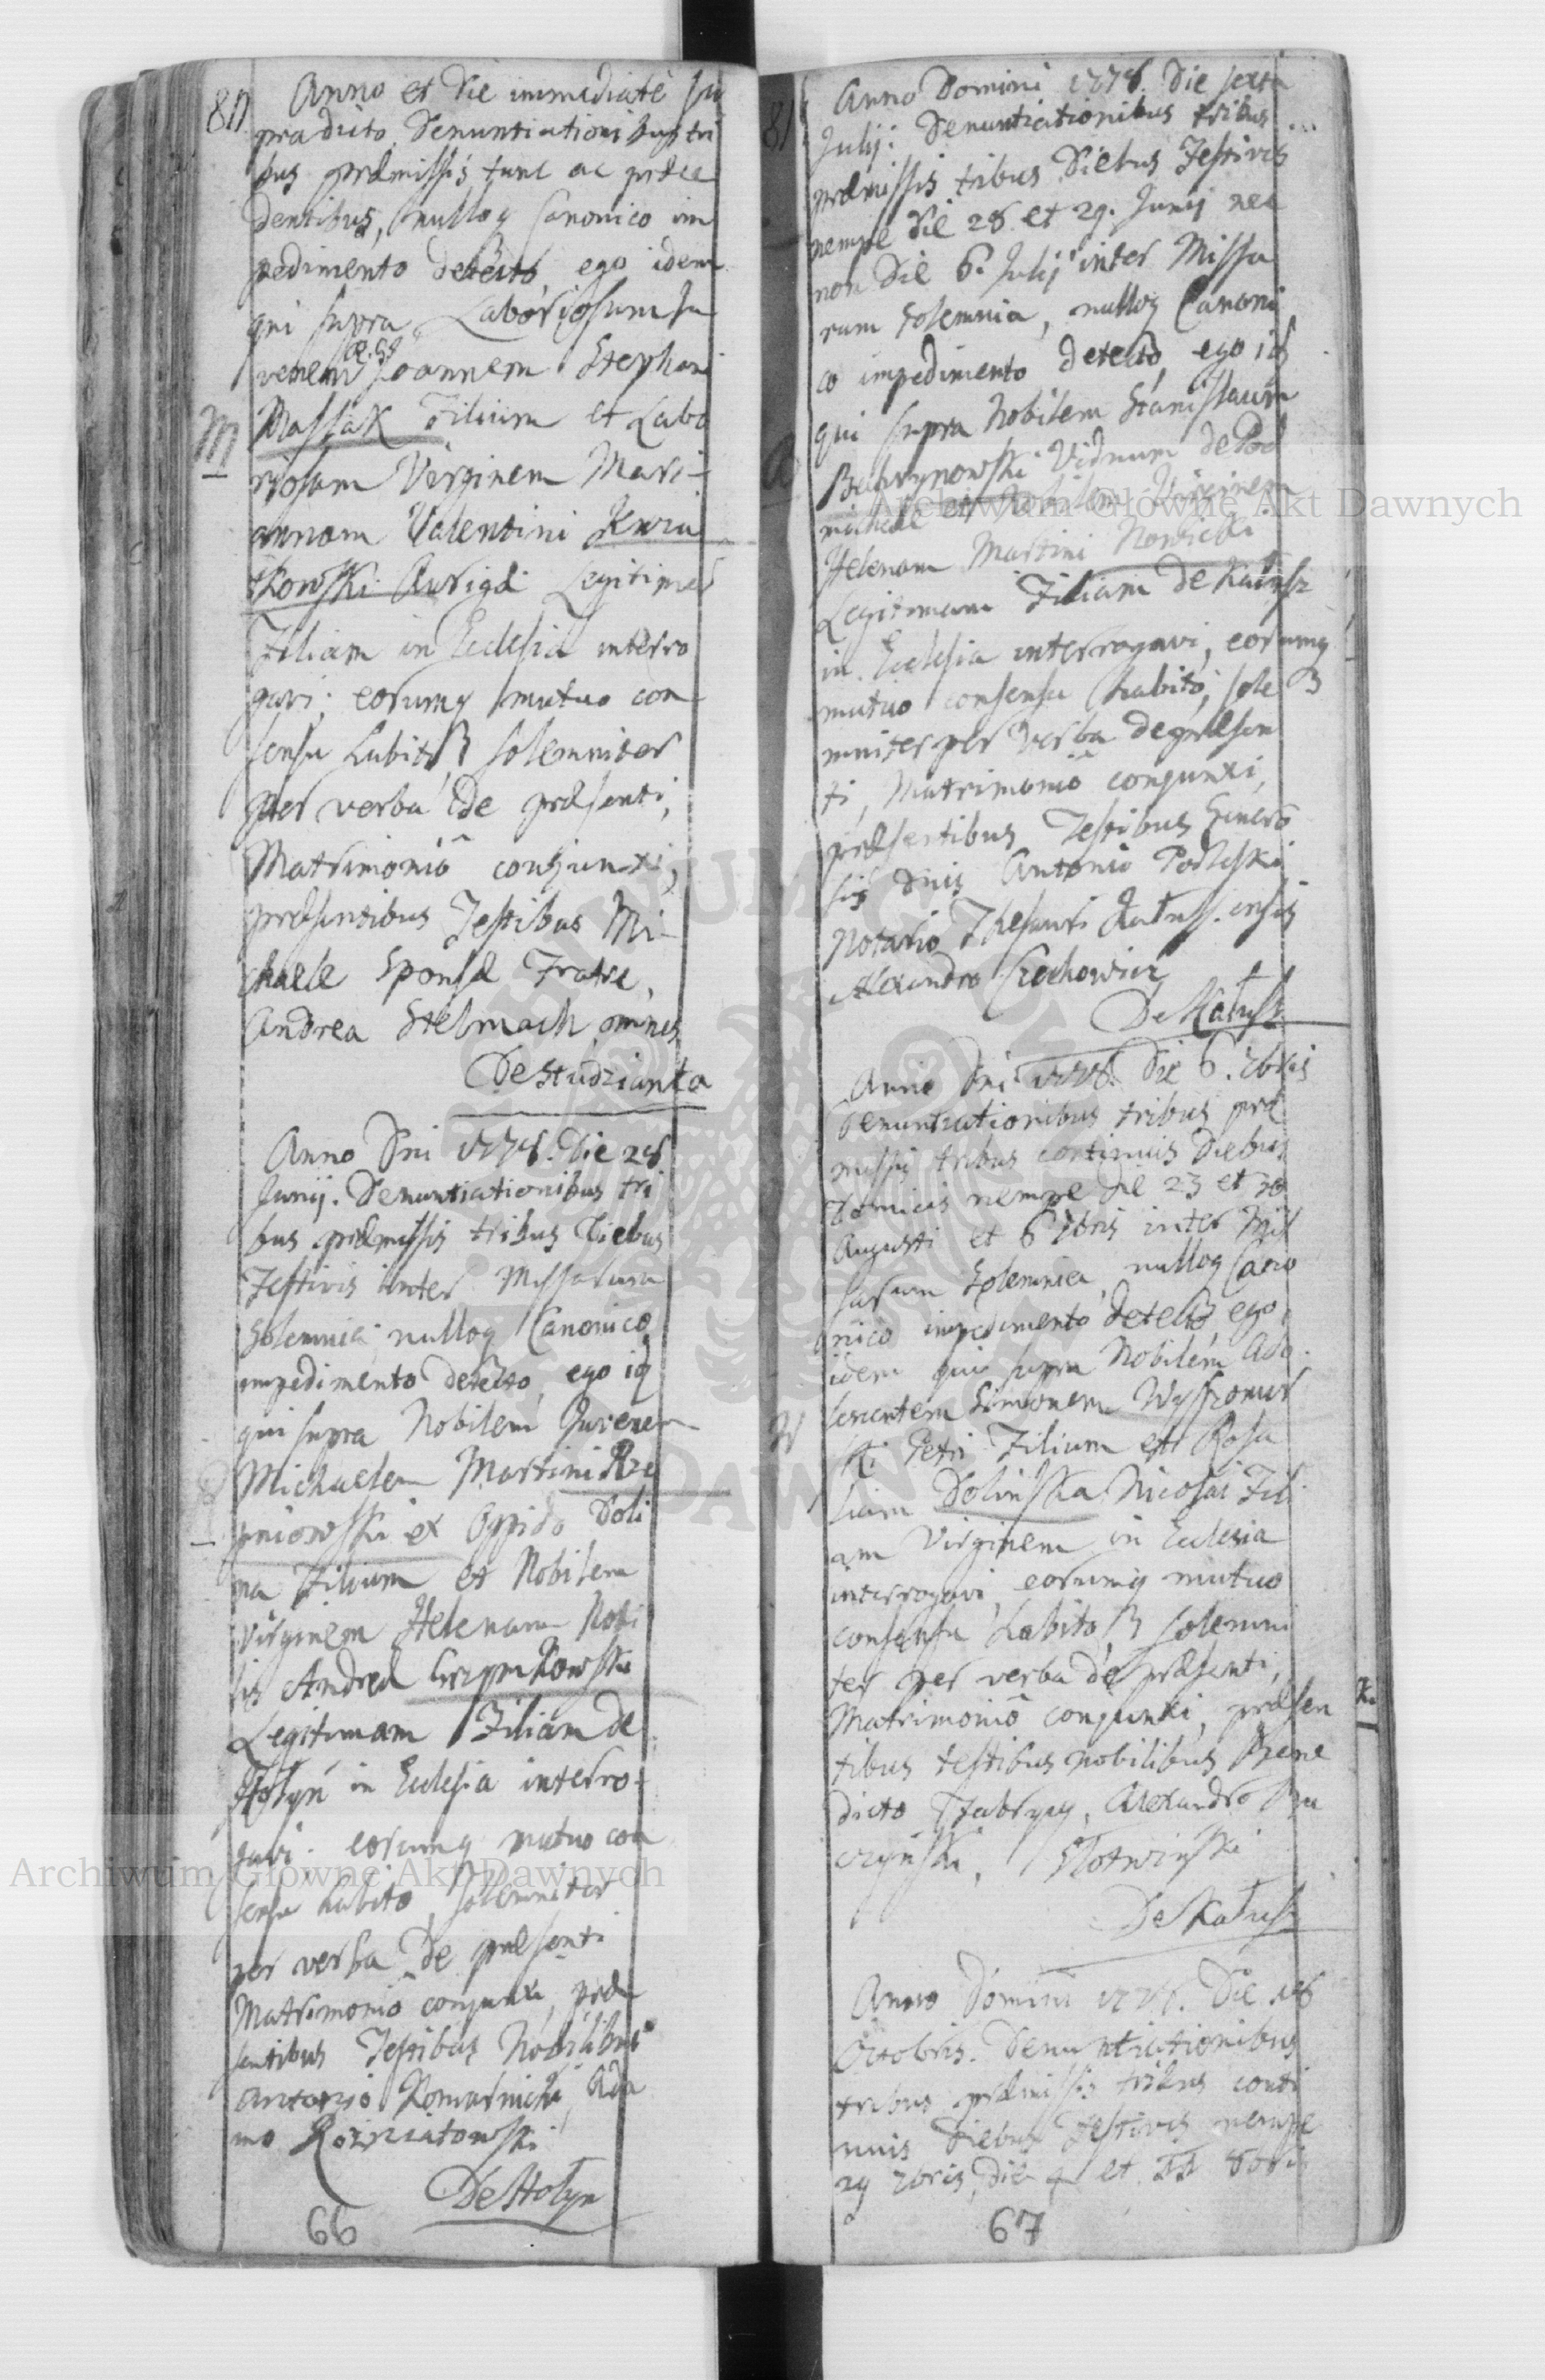 80
Anno et Die immediate su
pradicto Denuntiationibus tri
bus præmissis tunc ac præce
dentibus, nulloq Canonico im
pedimento detecto, ego idem
qui supra Laboriosum Ju
venem Joannem Stephani
M
Massak Filium et Labo
riosam Virginem Mari-
annam Valentini Kwia
tkowski Aurigæ Legitimam
Filiam in Ecclesia interro
gavi; eorumq mutuo con
sensu habito solemniter
per verba de præsenti,
Matrimoniô conjunxi,
præsentibus Testibus Mi-
chaele Sponsæ Fratre,
Andrea Stelmach omnes
De Studzianka
Anno Dni 1778. Die 28
Junij. Denuntiationibus tri
bus præmissis tribus Diebus
Festivis inter Missarum
Solemnia; nulloq Canonico
impedimento detecto, ego id
qui supra Nobilem Juvenem
Michaelem Martini Rze
pniowski ex Oppido Doli
na Filium et Nobilem
Virginem Helenam Nobi
lis Andreæ Krzynkowski
Legitimam Filiam de
Hołyń in Ecclesia interro-
gavi; eorumq mutuo con
sensu habito, solemniter
per verba de præsenti
Matrimoniô conjunxi, præ
sentibus Testibus Nobilibus
Antonio Komarnicki, Ada
mo Rozniatowski
De Hołyn
66
81
Anno Domini 1778. Die sexta
Julij: Denuntiationibus tribus
præmissis tribus Diebus Festivis
nempe Die 28. et 29. Junij nec
non Die 6. Julij inter Missa
rum Solemnia, nulloq Canoni
co impedimento detecto, ego id
qui supra Nobilem Stanislaum
Viduum de Pod
et Nobilem Virginem
Helenam Martini Nowicki
Legitimam Filiam de Kałusz
in Ecclesia interrogavi, eorumq
mutuo consensu habito, sole
mniter per verba de præsen
ti, Matrimoniô conjunxi,
præsentibus Testibus Genero
sis Dnis Antonio Podleski
Notario Thesauri Kałuss.ensis
Alexandro Czechowicz
De Kałusz
Anno Dni 1778. Die 6. 7bris
Denuntiationibus tribus præ
missis tribus continuis Diebus
Dominicis nempe Die 23 et 30
Augusti et 6 7bris inter Mis
sarum Solemnia, nulloq Cano
nico impedimento detecto ego
idem qui supra Nobilem Ado-
W
lescentem Simonem Wyszomir
ski Petri Filium et Rosa
liam Dolinska Nicolai Fili
am Virginem in Ecclesia
interrogavi, eorumq mutuo
consensu habito, solemni
ter per verba de præsenti,
Matrimoniô conjunxi, præsen
tibus testibus Nobilibus Bene
dicto Fabrycy, Alexandro Bu
czyński, Słotwiński
De Kałusz
K.
Anno Domini 1778. Die 18
Octobris. Denuntiationibus
tribus præmissis tribus conti
nuis Diebus Festivis nempe
29 7bris, Die 4 et 11 8bris
67
Archiwum Główne Akt Dawnych
Archiwum Główne Akt Dawnych